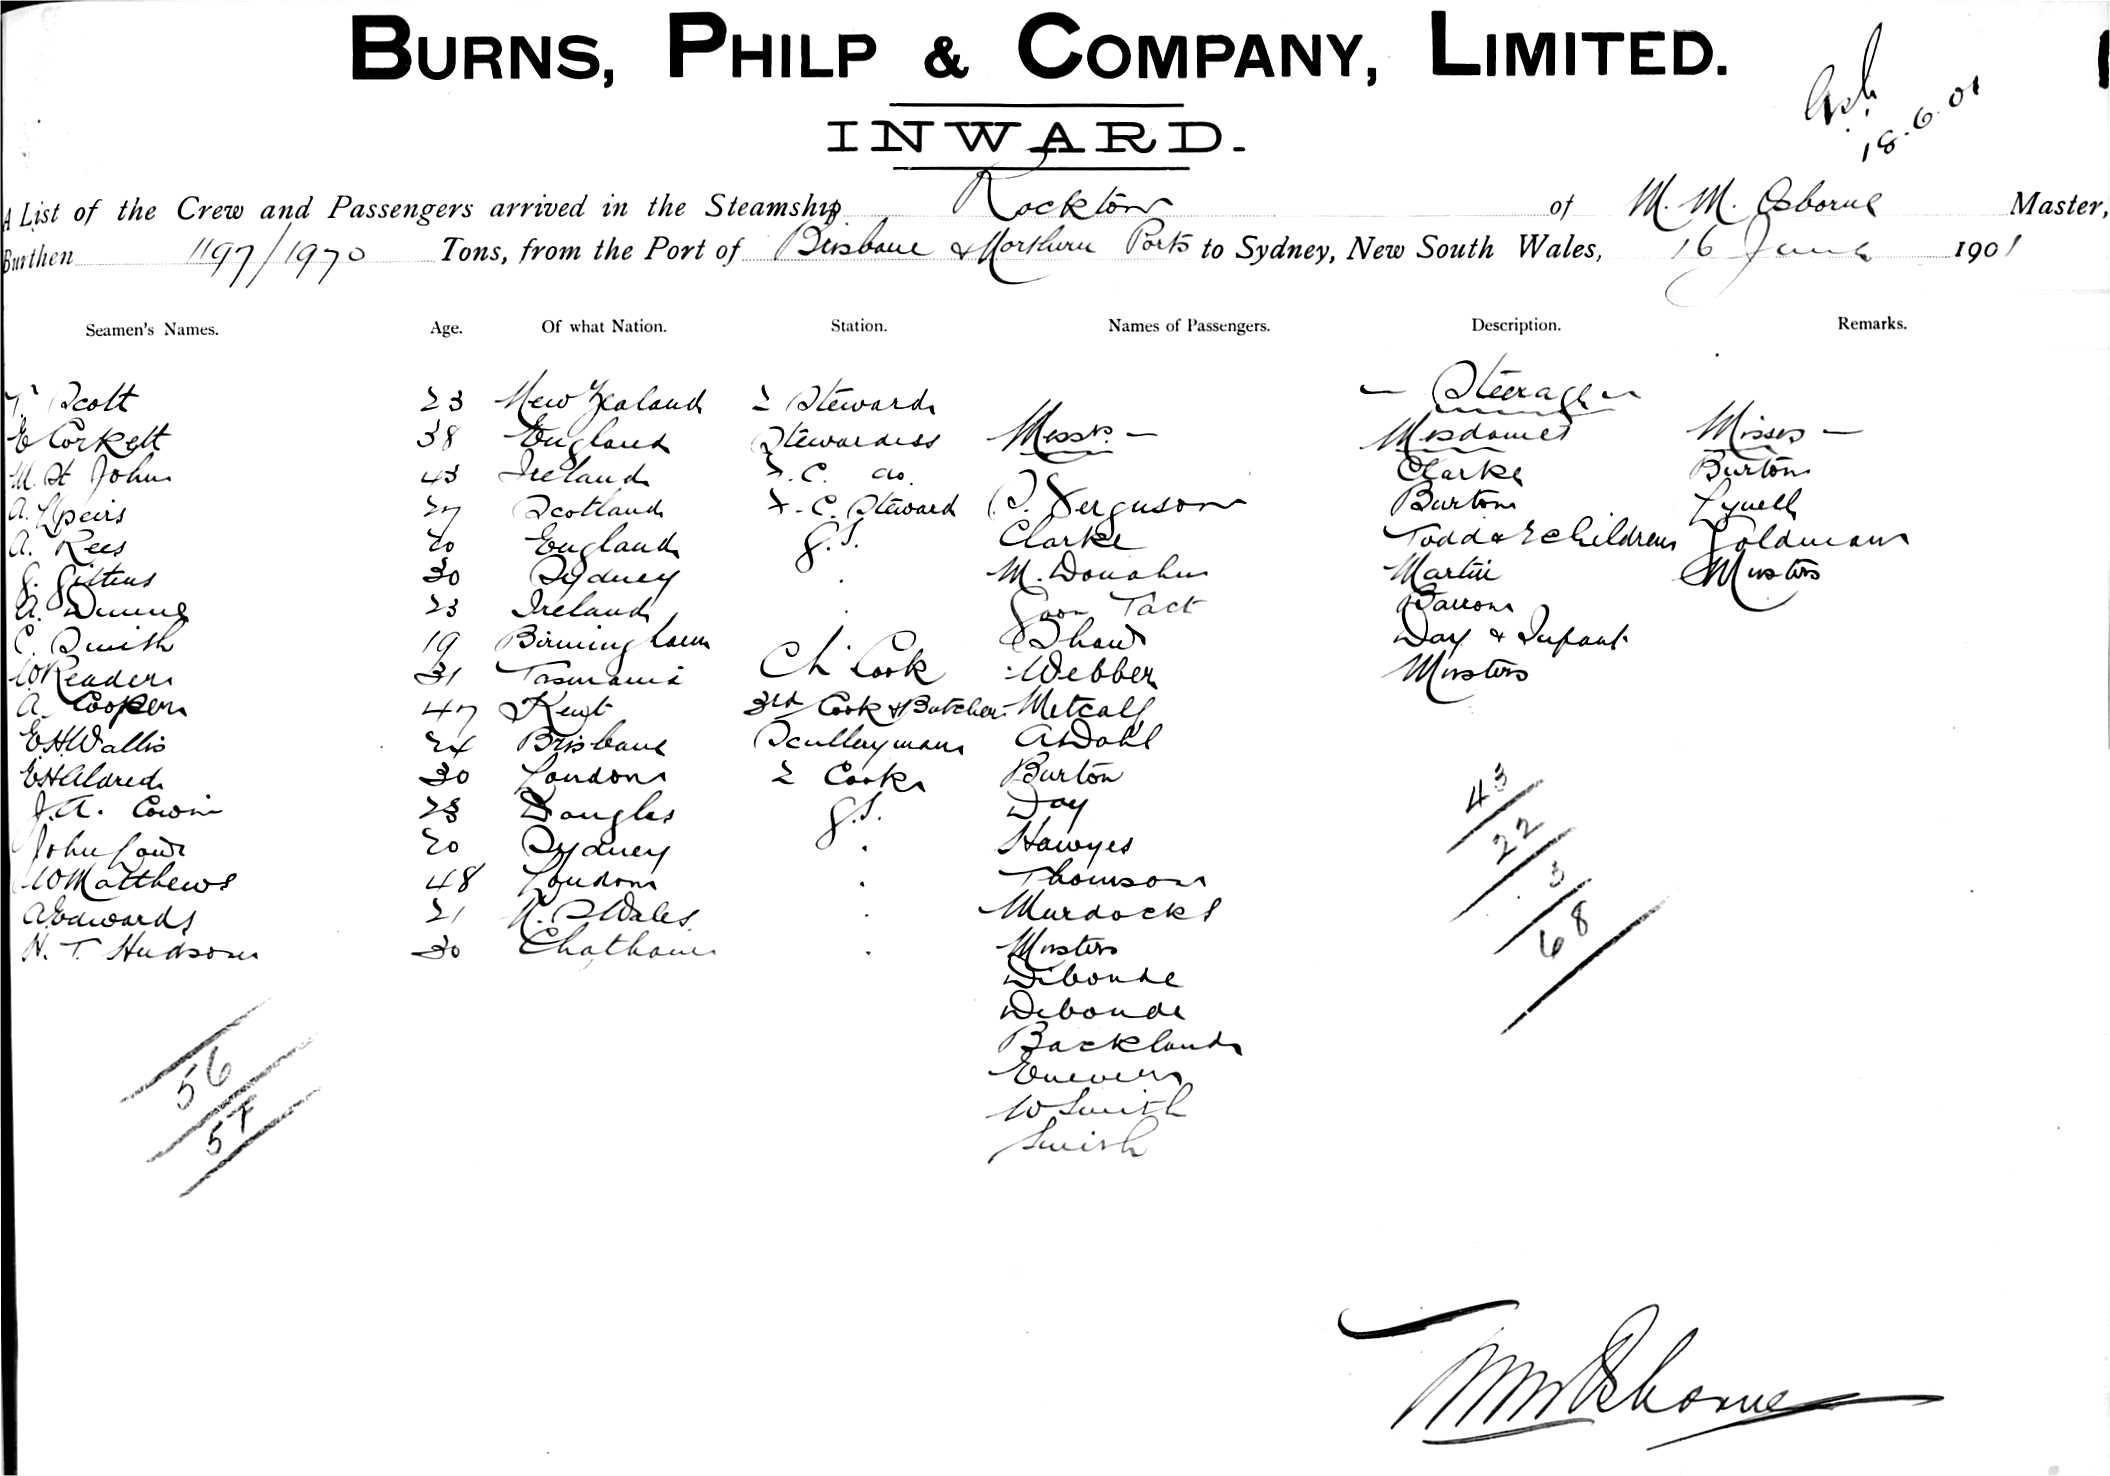 BURNS, PHILP & COMPANY, LIMITED.
18.6.01
INWARD.
A List of the Crew and Passengers arrived in the Steamship Rockton of M. M. Osborne Master,
Burthen 1197/1970 Tons, from the Port of Brisbane & Northern Ports to Sydney, New South Wales, 16 June 1901
Seamen's Names. Age. Of what Nation. Station. Names of Passengers. Description. Remarks.
Steerage
Scott 23 New Zealand 2 Steward
E Corkett 38 England Stewardess Messrs. Mesdames Misses
M. St John 43 Ireland F.C. do. Clarke Burton
A. Speirs 27 Scotland F.C. Steward Ferguson Burton Lynell
A. Rees 20 England G.S. Clarke Todd & 2 children Goldman
G. Gittens 30 Sydney M. Donahue Martin Musters
A. Dunne 23 Ireland Goon Tact Barron
C. Smith 19 Birmingham Shaw Day & Infant
W Reader 31 Tasmania Ch Cook Webber Musters
A. Cooper 47 Kent 3rd Cook & Butcher Metcalf
E H Wallis 24 Brisbane Sculleryman A Dahl
E H Aldred 30 London 2 Cook Burton
J. A. Cowin 23 Douglas G.S. Day
John Law 20 Sydney Hawyes
W Matthews 48 London Thomson
A Edwards 21 N. S Wales Murdocks
H. T. Hudson 30 Chatham Musters
Debonde
Debonde
Backland
W Smith
Smith
43
22
3
68
56
57
M M Osborne